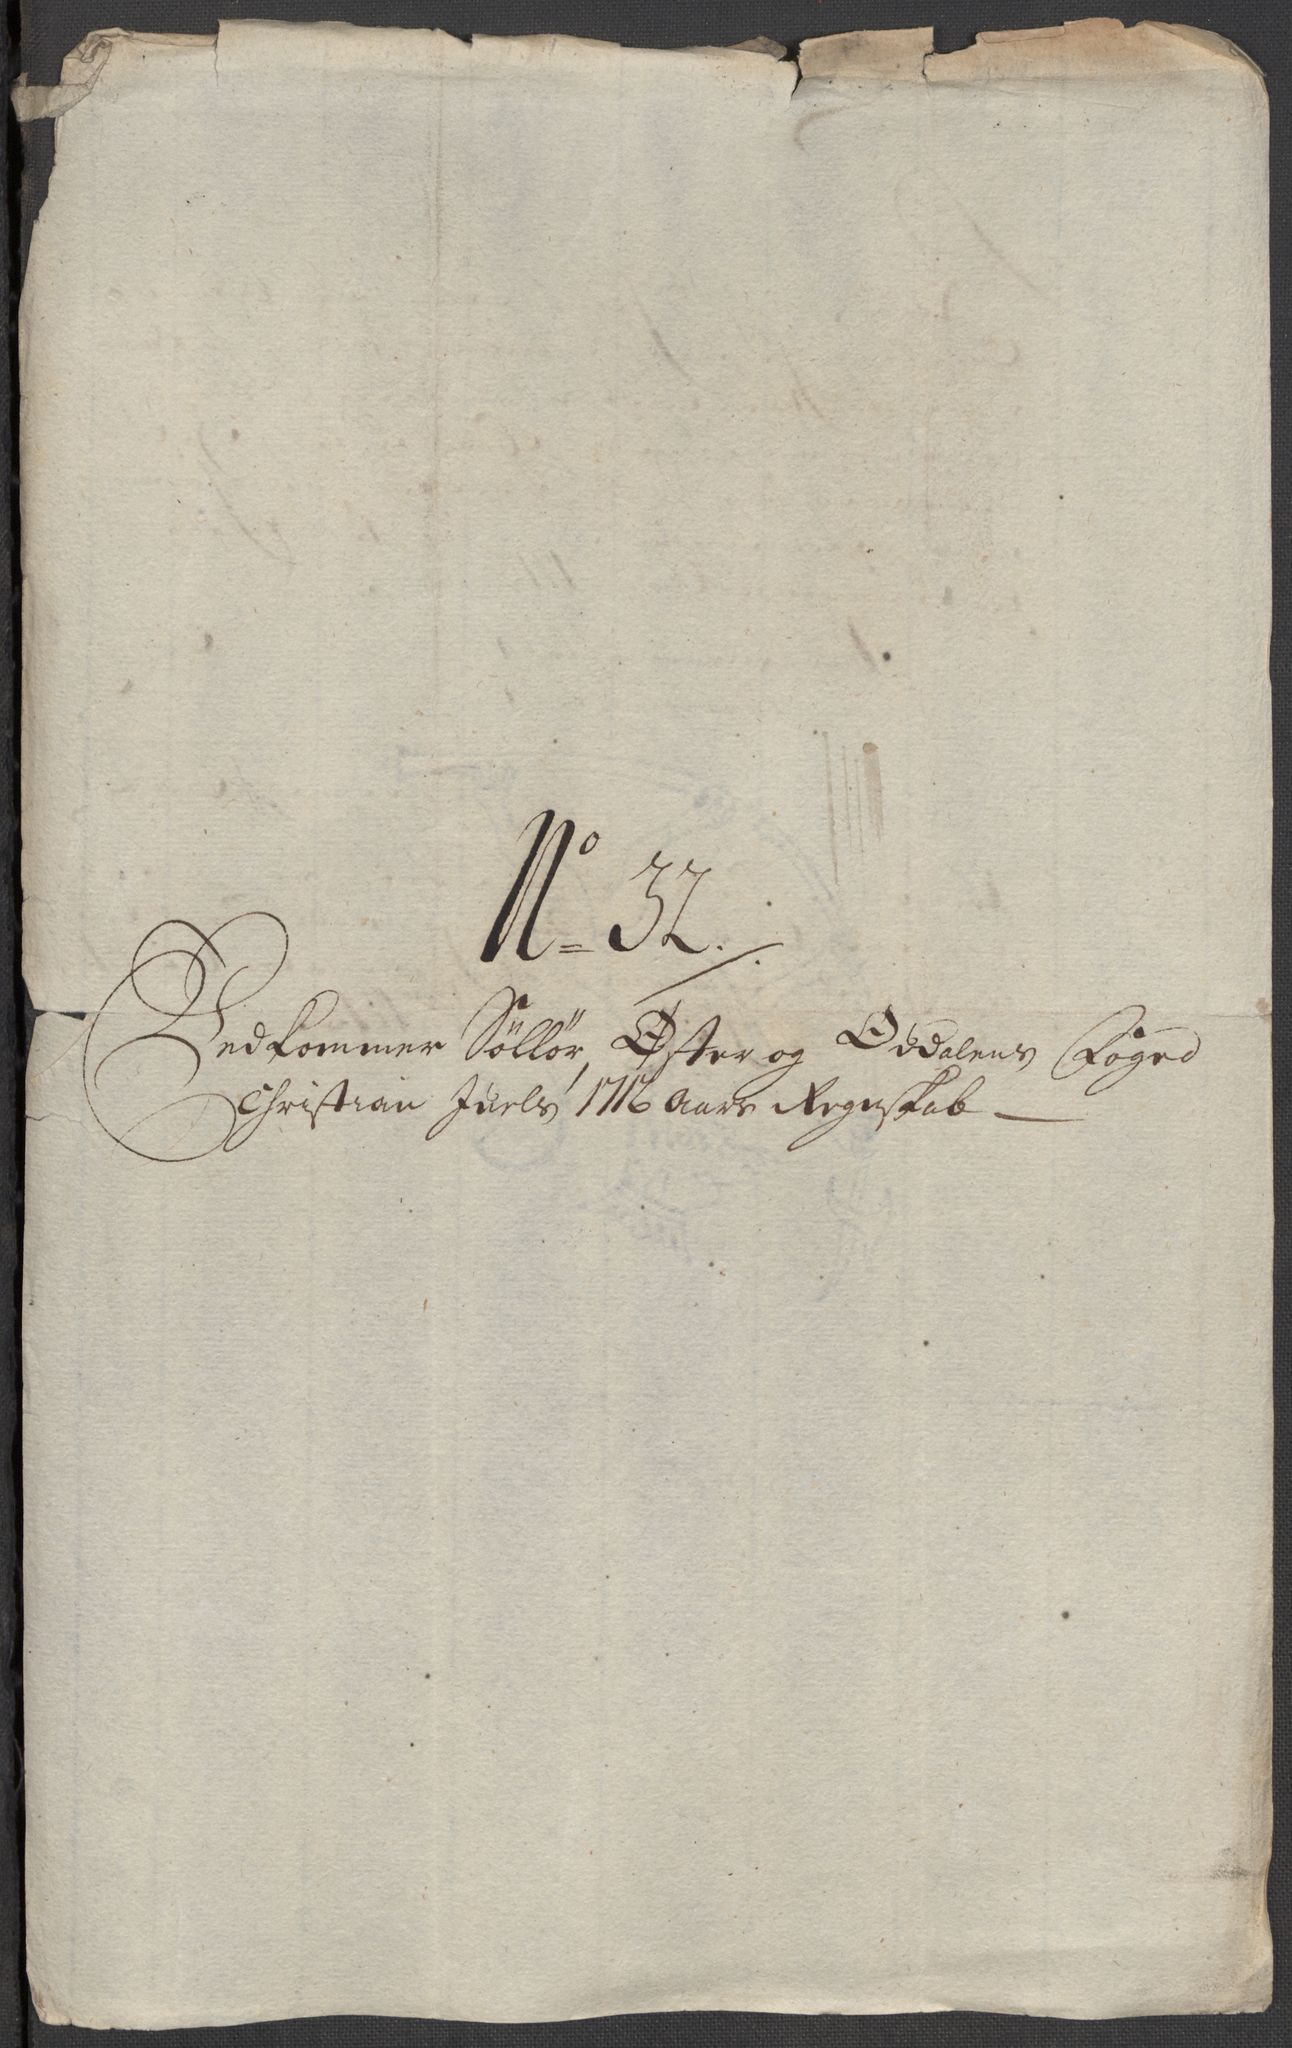 No 32.
Vedkommer Söllör, Øster og Oddalens Foged
Christian Juels 1716 Aars Regnskab